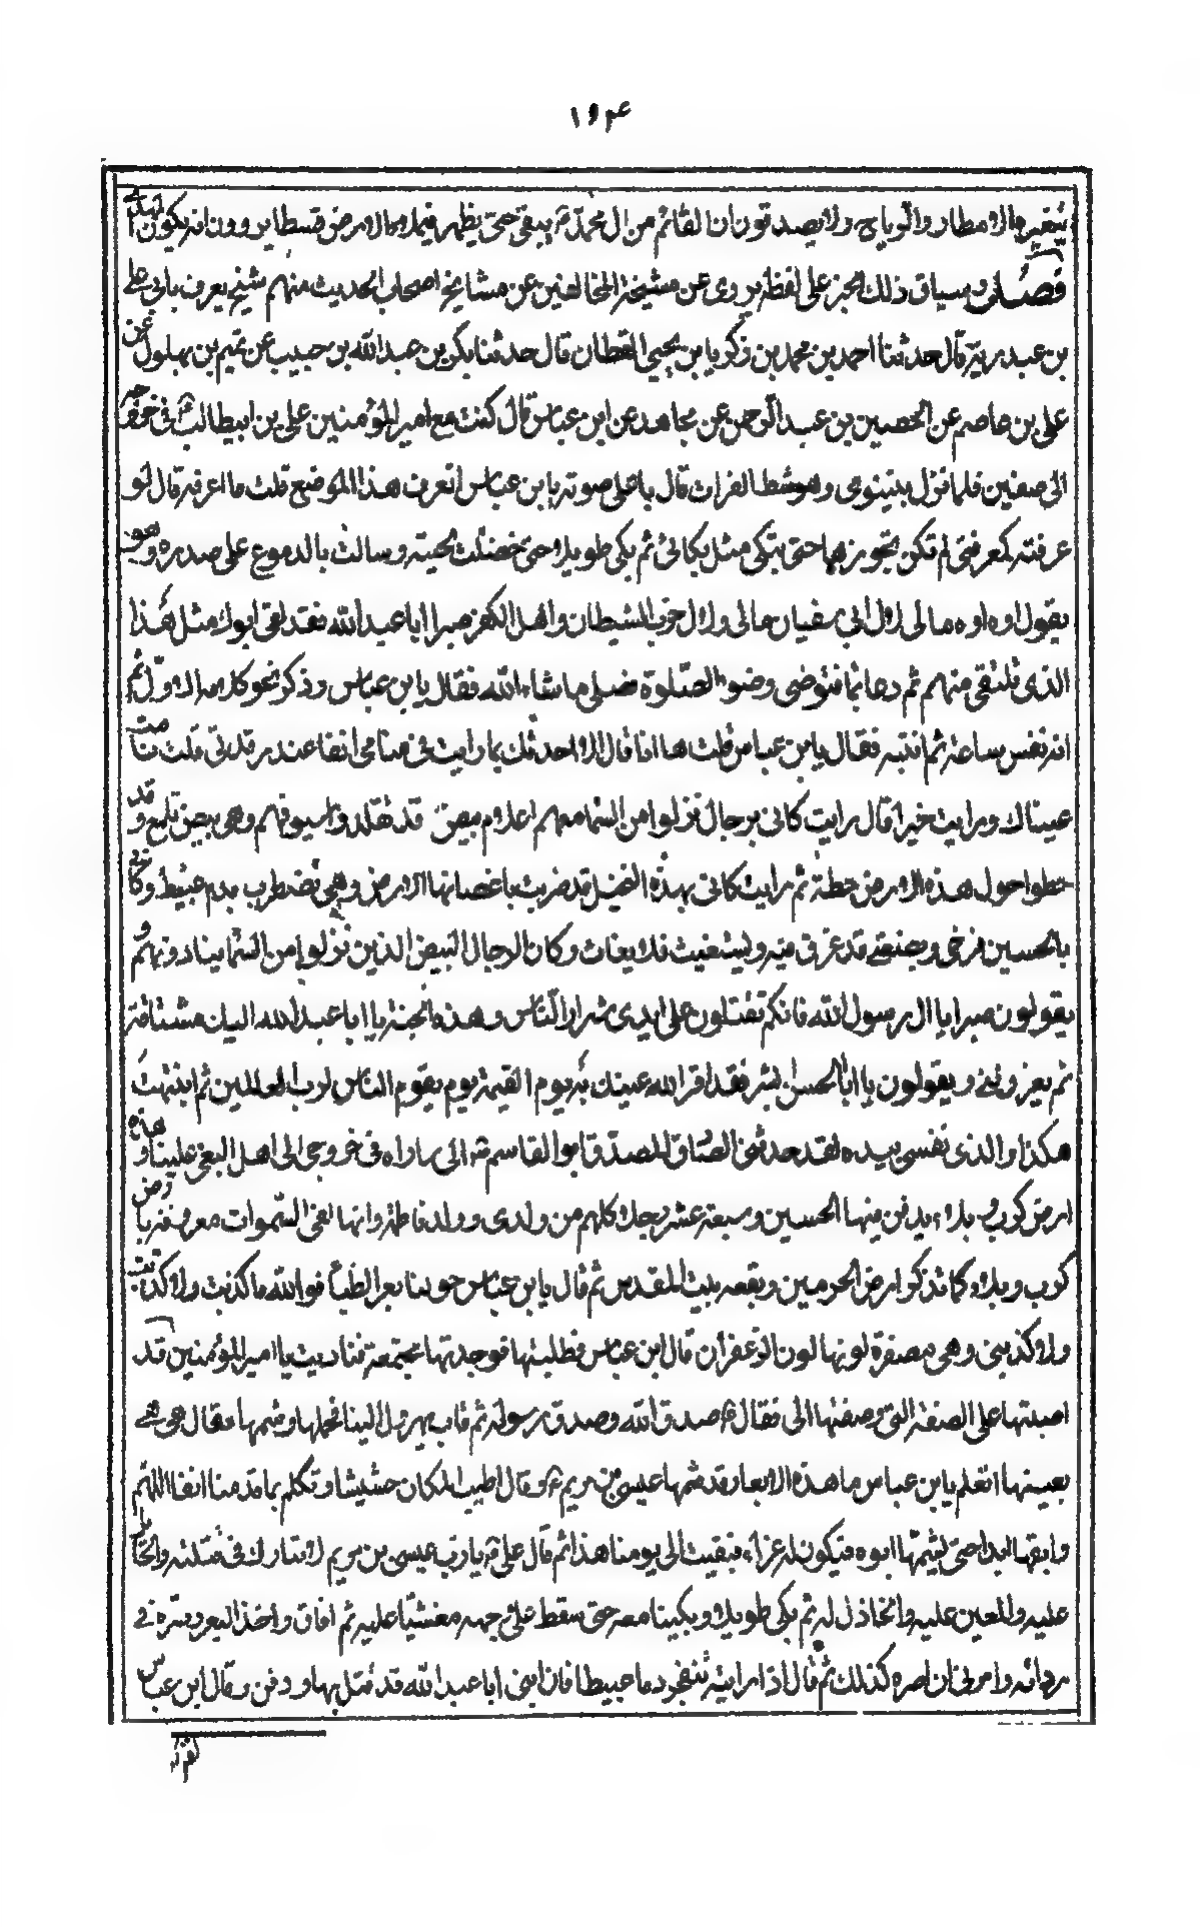 ١٩٤
بتغير الامطار والرياح ولا يصدقون ان القائم من ال محمد ع يبقى حتى يظهر فيملا الارض قسطا يروون انه يكون لهذا
فصل وسياق ذلك الخبر على لفظه يروى عن مشيخة المخالفين عن مشايخ اصحاب الحديث منهم شيخ يعرف بابي علي
بن عبد ربه قال حدثنا احمد بن محمد بن زكريا بن يحيى القطان قال حدثنا بكر بن عبد الله بن حبيب عن تميم بن بهلول عن
علي بن عاصم عن الحصين بن عبد الرحمن عن مجاهد عن ابن عباس قال كنت مع امير المؤمنين علي بن ابيطالب ع في خروجه
الى صفين فلما نزل بنينوى وهو شط الفرات قال باعلى صوته يا بن عباس اتعرف هذا الموضع قلت ما اعرفه قال لو
عرفته كمعرفتي لم تكن تجوزها حتى تبكي مثل بكائي ثم بكى طويلا حتى خضلت لحيته وسالت بالدموع على صدره وهو
يقول اوه اوه مالى ولال ابي سفيان مالى ولال حزب الشيطان واهل الكفر صبرا ابا عبد الله فقد لقى ابوك مثل هذا
الذى تلتقى منهم ثم دعا بماء فتوضى وضوء الصلوة فصلى ما شاء الله فقال يا بن عباس وذكر نحو كلامه الاول ثم
انه نفس ساعة ثم انتبه فقال يا بن عباس قلت ها انا قال الا احدثك بما رايت في منامي انفا عند رقدتي قلت نامت
عيناك ورايت خيرا قال رايت كانى برجال نزلوا من السماء معهم اعلام بيض قد تقلدوا سيوفهم وهي بيض تلمع وقد
خطوا حول هذه الارض خطة ثم رايت كانى بهذه النخيل قد ضربت باغصانها الارض وهي تضطرب بدم عبيط وكانى
بالحسين فرخي وبضعتي قد غرق فيه وليستغيث فلا يغاث وكان الرجال البيض الذين نزلوا من السماء ينادونه و
يقولون صبرا يا ال رسول الله فانكم تقتلون على ايدى شرار الناس وهذه الجنة يا ابا عبد الله اليك مشتاقة
ثم يعزونى ويقولون يا ابا الحسن ابشر فقد اقر الله عينك به يوم القيمة يوم يقوم الناس لرب العالمين ثم انتبهت
هكذا والذى نفسي بيده لقد حدثني الصادق المصدق ابو القاسم ع انى ساراه في خروجي الى اهل البغي علينا وهذه
ارض كرب وبلاء يدفن فيها الحسين وسبعة عشر رجلا كلهم من ولدى وولد فاطمة وانها لفي السموات معروفة بارض
كرب وبلاء كما تذكر ارض الحرمين وبقعة بيت المقدس ثم قال يا بن عباس حولنا بعر الظباء فوالله ما كذبت ولا كذبت
ولا كذبنى وهي مصفرة لونها لون الزعفران قال ابن عباس فطلبتها فوجدتها مجتمعة فناديت يا امير المؤمنين قد
اصبتها على الصفة التى وصفتها الى فقال ع صدق الله وصدق رسوله ثم قام يهرول الينا فحملها وشمها فقال هي هي
بعينها اتعلم يا بن عباس ما هذه الابعار قد شمها عيسى بن مريم ع وقال اطيب المكان حشيشا وتكلم بما قدمنا انفا اللهم
وابقها ابدا حتى يشمها ابوه فيكون له عزاء فبقيت الى يومنا هذا ثم قال على ع يا رب عيسى بن مريم لا تبارك في قتلته والحامل
عليه والمعين عليه والخاذل له ثم بكى طويلا وبكينا معه حتى سقط على وجهه مغشيا عليه ثم افاق واخذ البعر وستره في
ردائه وامرنى ان اصره كذلك ثم قال اذا رايته تنفجر دما عبيطا فان ابنى ابا عبد الله قد قتل بها ودفن وقال ابن عباس